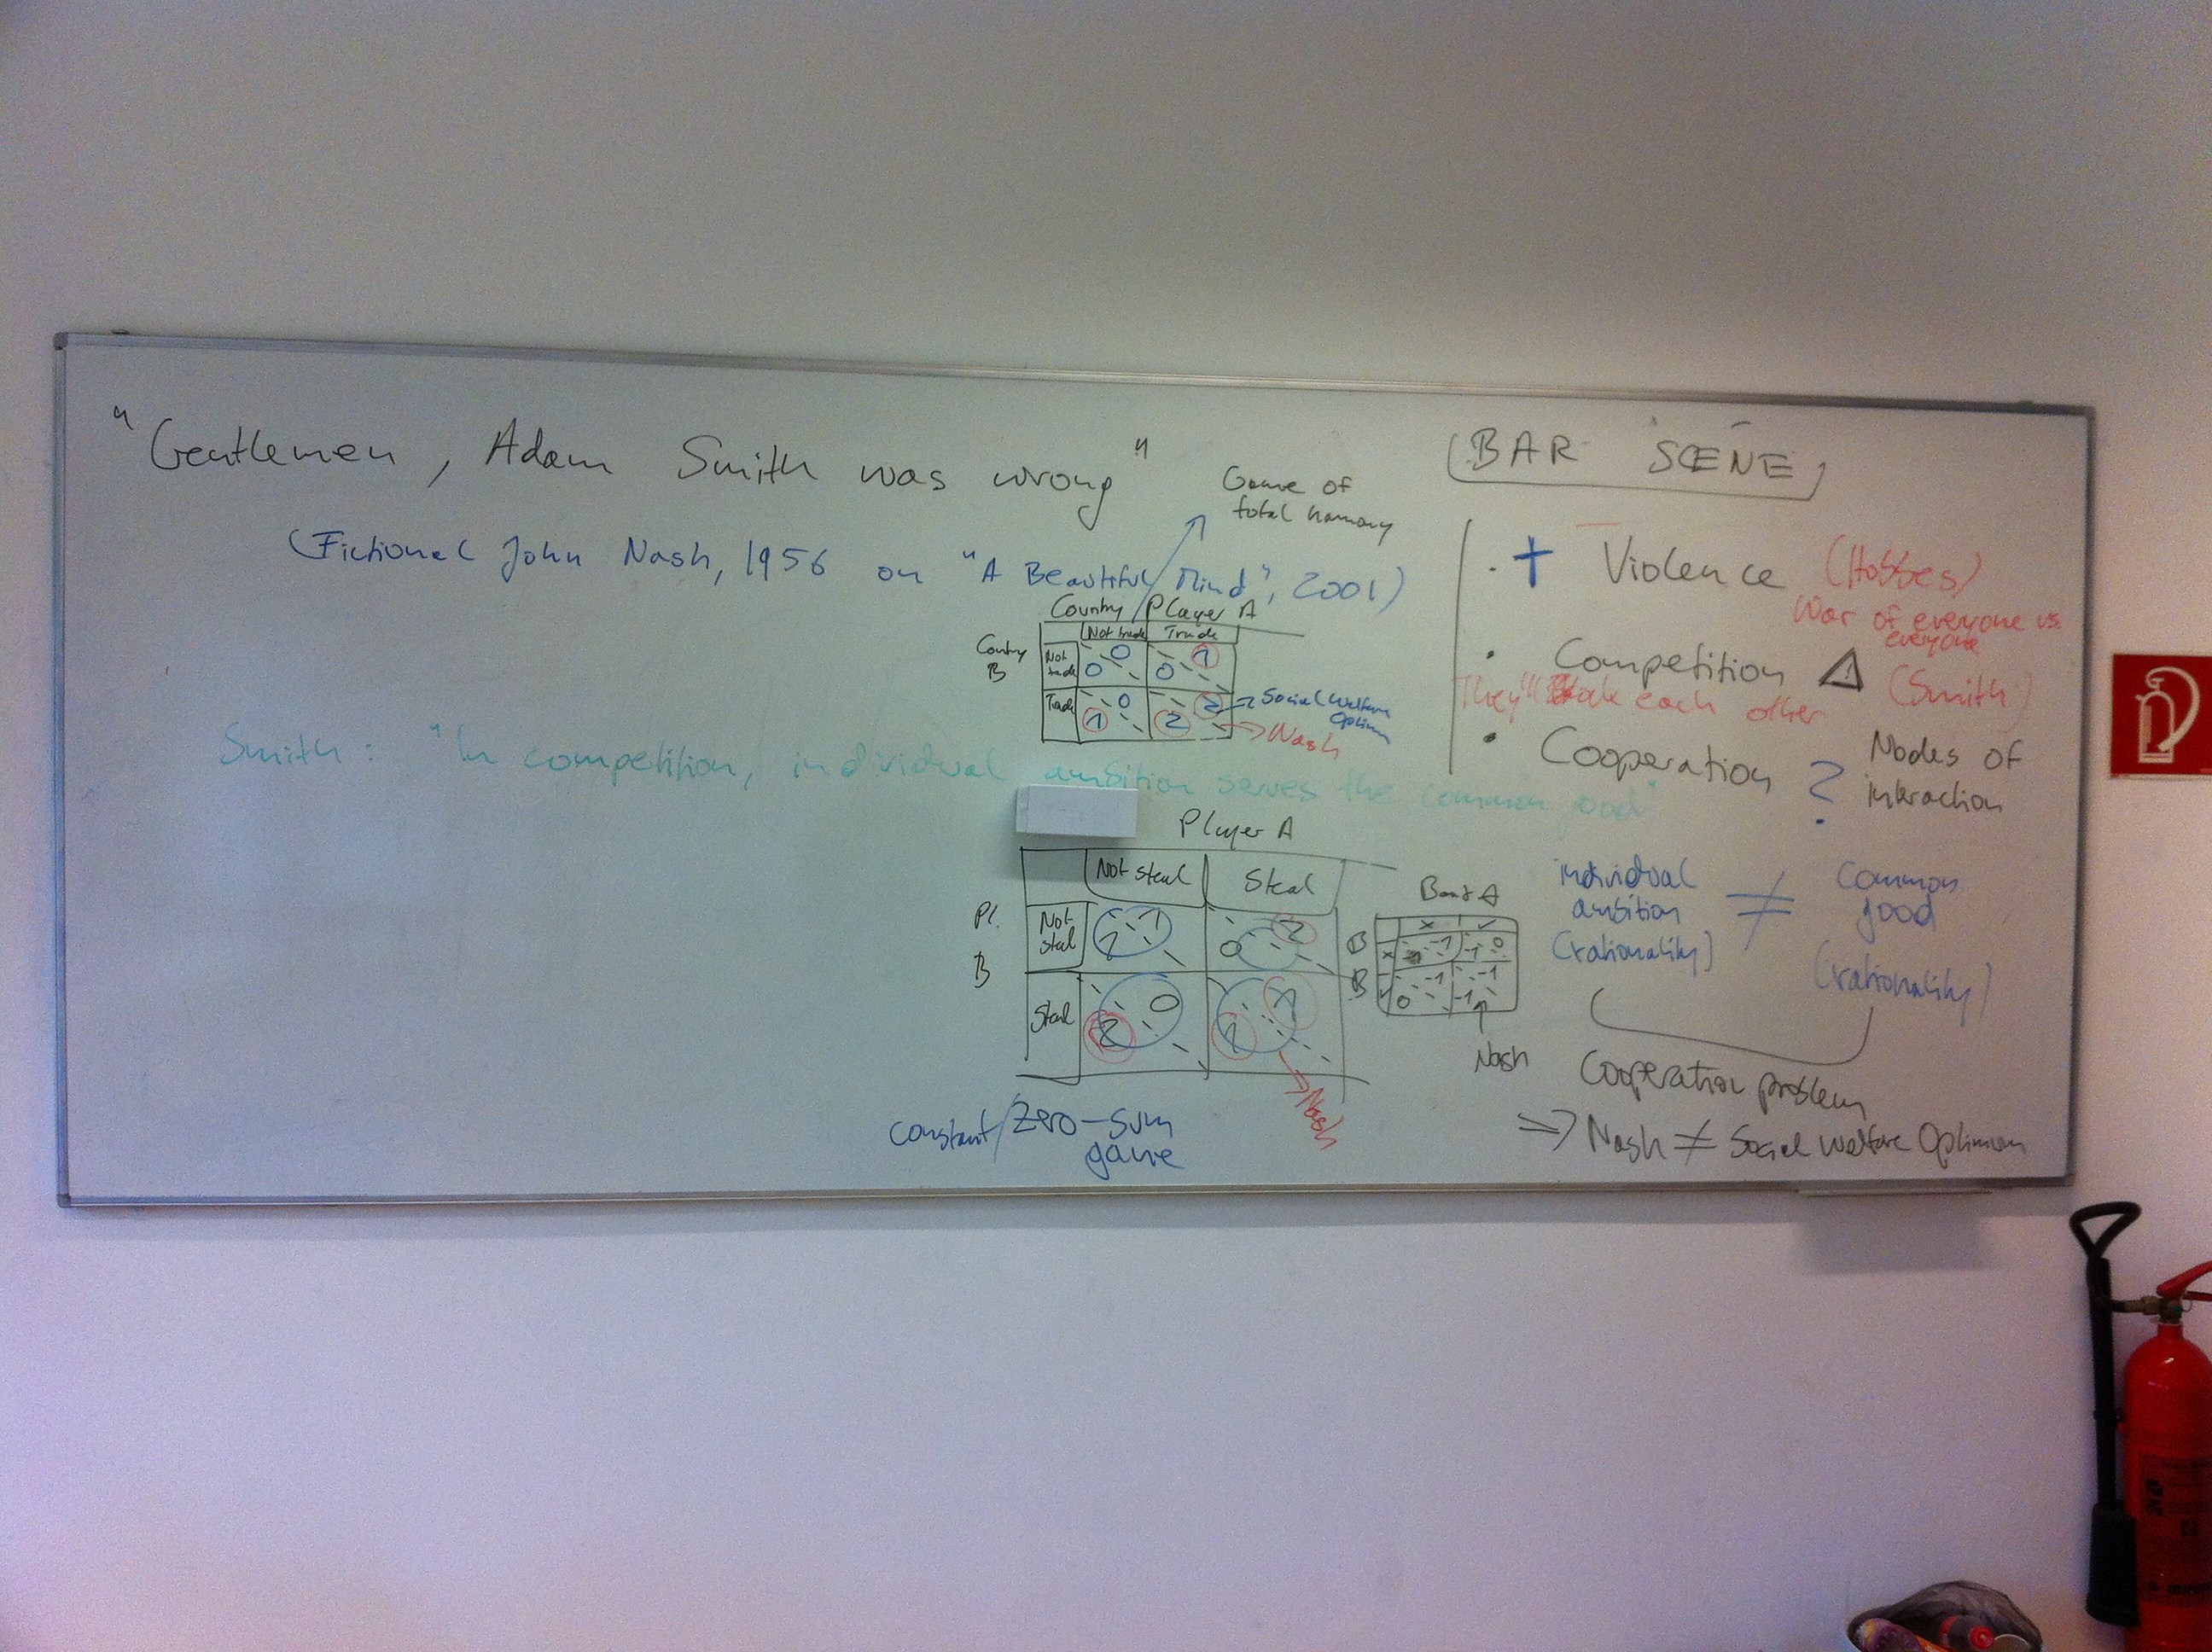 "Gentlemen, Adam Smith was wrong"
(Fictional John Nash, 1956 on "A Beautiful Mind", 2001)
Game of
total harmony
Country / Player A
Not trade Trade
Country
B
Not
trade
0 0 0 1
Trade
0 1 2 2
Social Welfare
Optimum
Nash
Smith: "In competition, individual ambition serves the common good"
Player A
Not steal Steal
Pl.
B
Not
steal
1 1 0 2
Steal
0 2 1 1
Nash
constant/Zero-sum
game
A
B
-1 -1 0
-1 -1
0 -1
Nash
BAR SCENE
+ Violence (Hobbes)
War of everyone vs.
everyone
Competition (Smith)
each other
Cooperation ?
Modes of
interaction
individual
ambition
(rationality)
≠
common
good
(rationality)
Cooperation problem
=> Nash ≠ Social Welfare Optimum